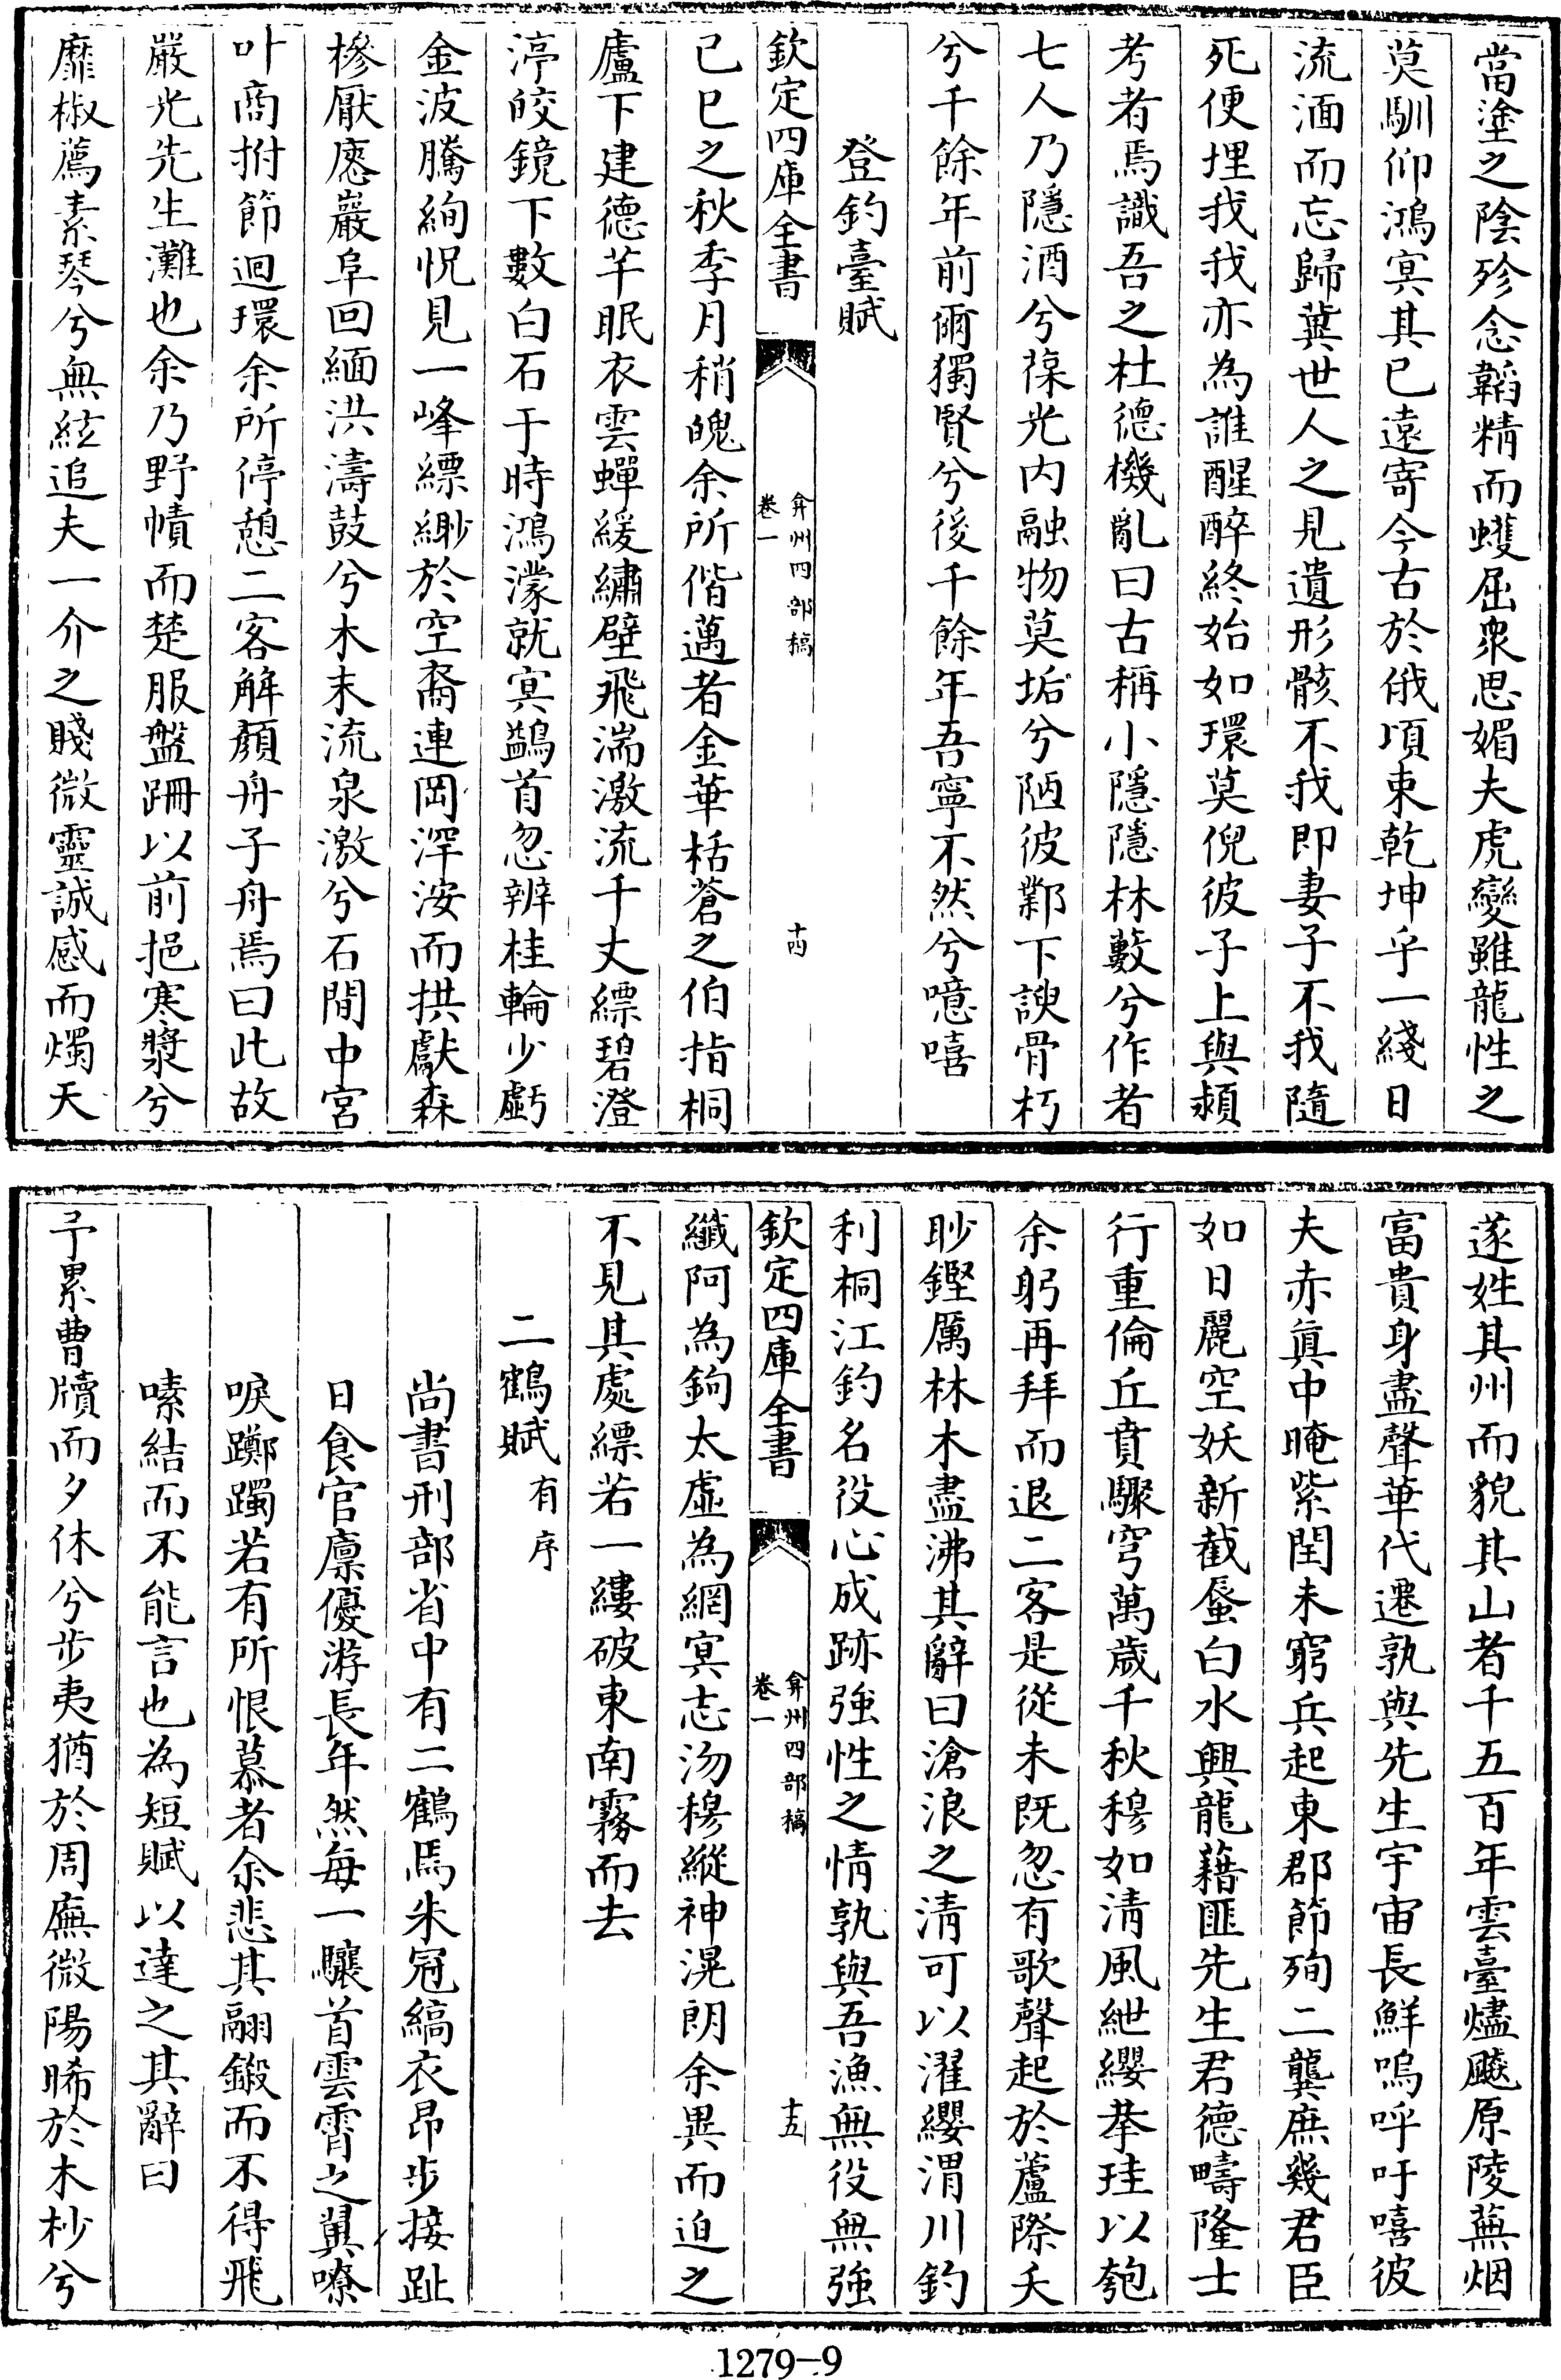 當塗之陰殄念韜精而蠖屈衆思媚夫虎變雖龍性之
莫馴仰鴻冥其已遠寄今古於俄頃束乾坤乎一綫日
流湎而忘歸冀世人之見遺形骸不我即妻子不我隨
死便埋我我亦為誰醒醉終始如環莫倪彼子上與潁
考者焉識吾之杜德機亂曰古稱小隱隱林藪兮作者
七人乃隱酒兮葆光内融物莫垢兮陋彼鄴下諛骨朽
兮千餘年前爾獨賢兮後千餘年吾寧不然兮噫嘻
登釣臺賦
欽定四庫全書
弇州四部稿
卷一
十四
己巳之秋季月稍魄余所偕邁者金華栝蒼之伯指桐
廬下建德芊眠衣雲蟬緩繡壁飛湍激流千丈縹碧澄
渟皎鏡下數白石于時鴻濛就冥鷁首忽辨桂輪少虧
金波騰絢怳見一峰縹緲於空裔連岡浑洝而拱獻森
椮厭䆴巖阜回緬洪濤鼓兮木末流泉激兮石間中宮
叶商拊節迴環余所停憩二客解顏舟子舟焉曰此故
嚴光先生灘也余乃野幘而楚服盤跚以前挹寒漿兮
靡椒薦素琴兮無絃追夫一介之賤微靈誠感而燭天
遂姓其州而貌其山者千五百年雲臺燼飈原陵蕪烟
富貴身盡聲華代遷孰與先生宇宙長鮮嗚呼吁嘻彼
夫赤眞中晻紫閏未窮兵起東郡節殉二龔庶幾君臣
如日麗空妖新截蜃白水興龍藉匪先生君德疇隆士
行重倫丘賁驟穹萬歲千秋穆如清風紲纓摹珪以匏
余躬再拜而退二客是從未既忽有歌聲起於蘆際夭
眇鏗厲林木盡沸其辭曰滄浪之清可以濯纓渭川釣
利桐江釣名役心成跡強性之情孰與吾漁無役無強
欽定四庫全書
弇州四部稿
卷一
十五
纖阿為鉤太虛為網冥志沕穆縱神滉朗余異而迫之
不見其處縹若一縷破東南霧而去
二鶴賦有序
尚書刑部省中有二鶴焉朱冠縞衣昂步接趾
日食官廪優游長年然每一驤首雲霄之翼嘹
唳躑躅若有所恨慕者余悲其翮鍛而不得飛
嗉結而不能言也為短賦以達之其辭曰
予累曹牘而夕休兮步夷猶於周廡微陽晞於木杪兮
1279-9